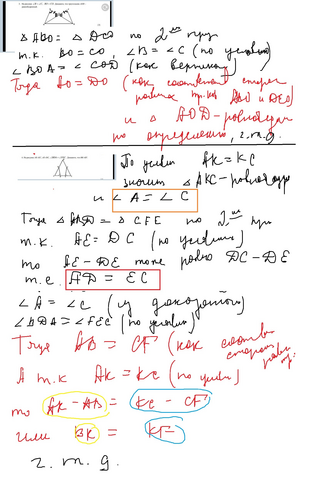 △ ABO = △ DCO по 2му пр
т.к. BO = CO, ∠B = ∠C (по условию)
∠BOA = ∠COD (как вертикальн)
Тогда AO = DO (как соответств сторон
равных тр-ков ABO и DCO)
и △ AOD - равнобедр
по определению, ч.т.д.
По условию AK = KC
значит △ AKC - равнобедр
и ∠A = ∠C
Тогда △ BAD = △ CFE по 2му пр
т.к. AE = DC (по условию)
то AE - DE тоже равно DC - DE
т.е. AD = EC
∠A = ∠C (из доказанного)
∠BDA = ∠FEC (по условию)
Тогда AB = CF (как соотв
сторон равн
А т.к AK = KC (по условию)
то AK - AB = KC - CF
или BK = KF
ч.т.д.